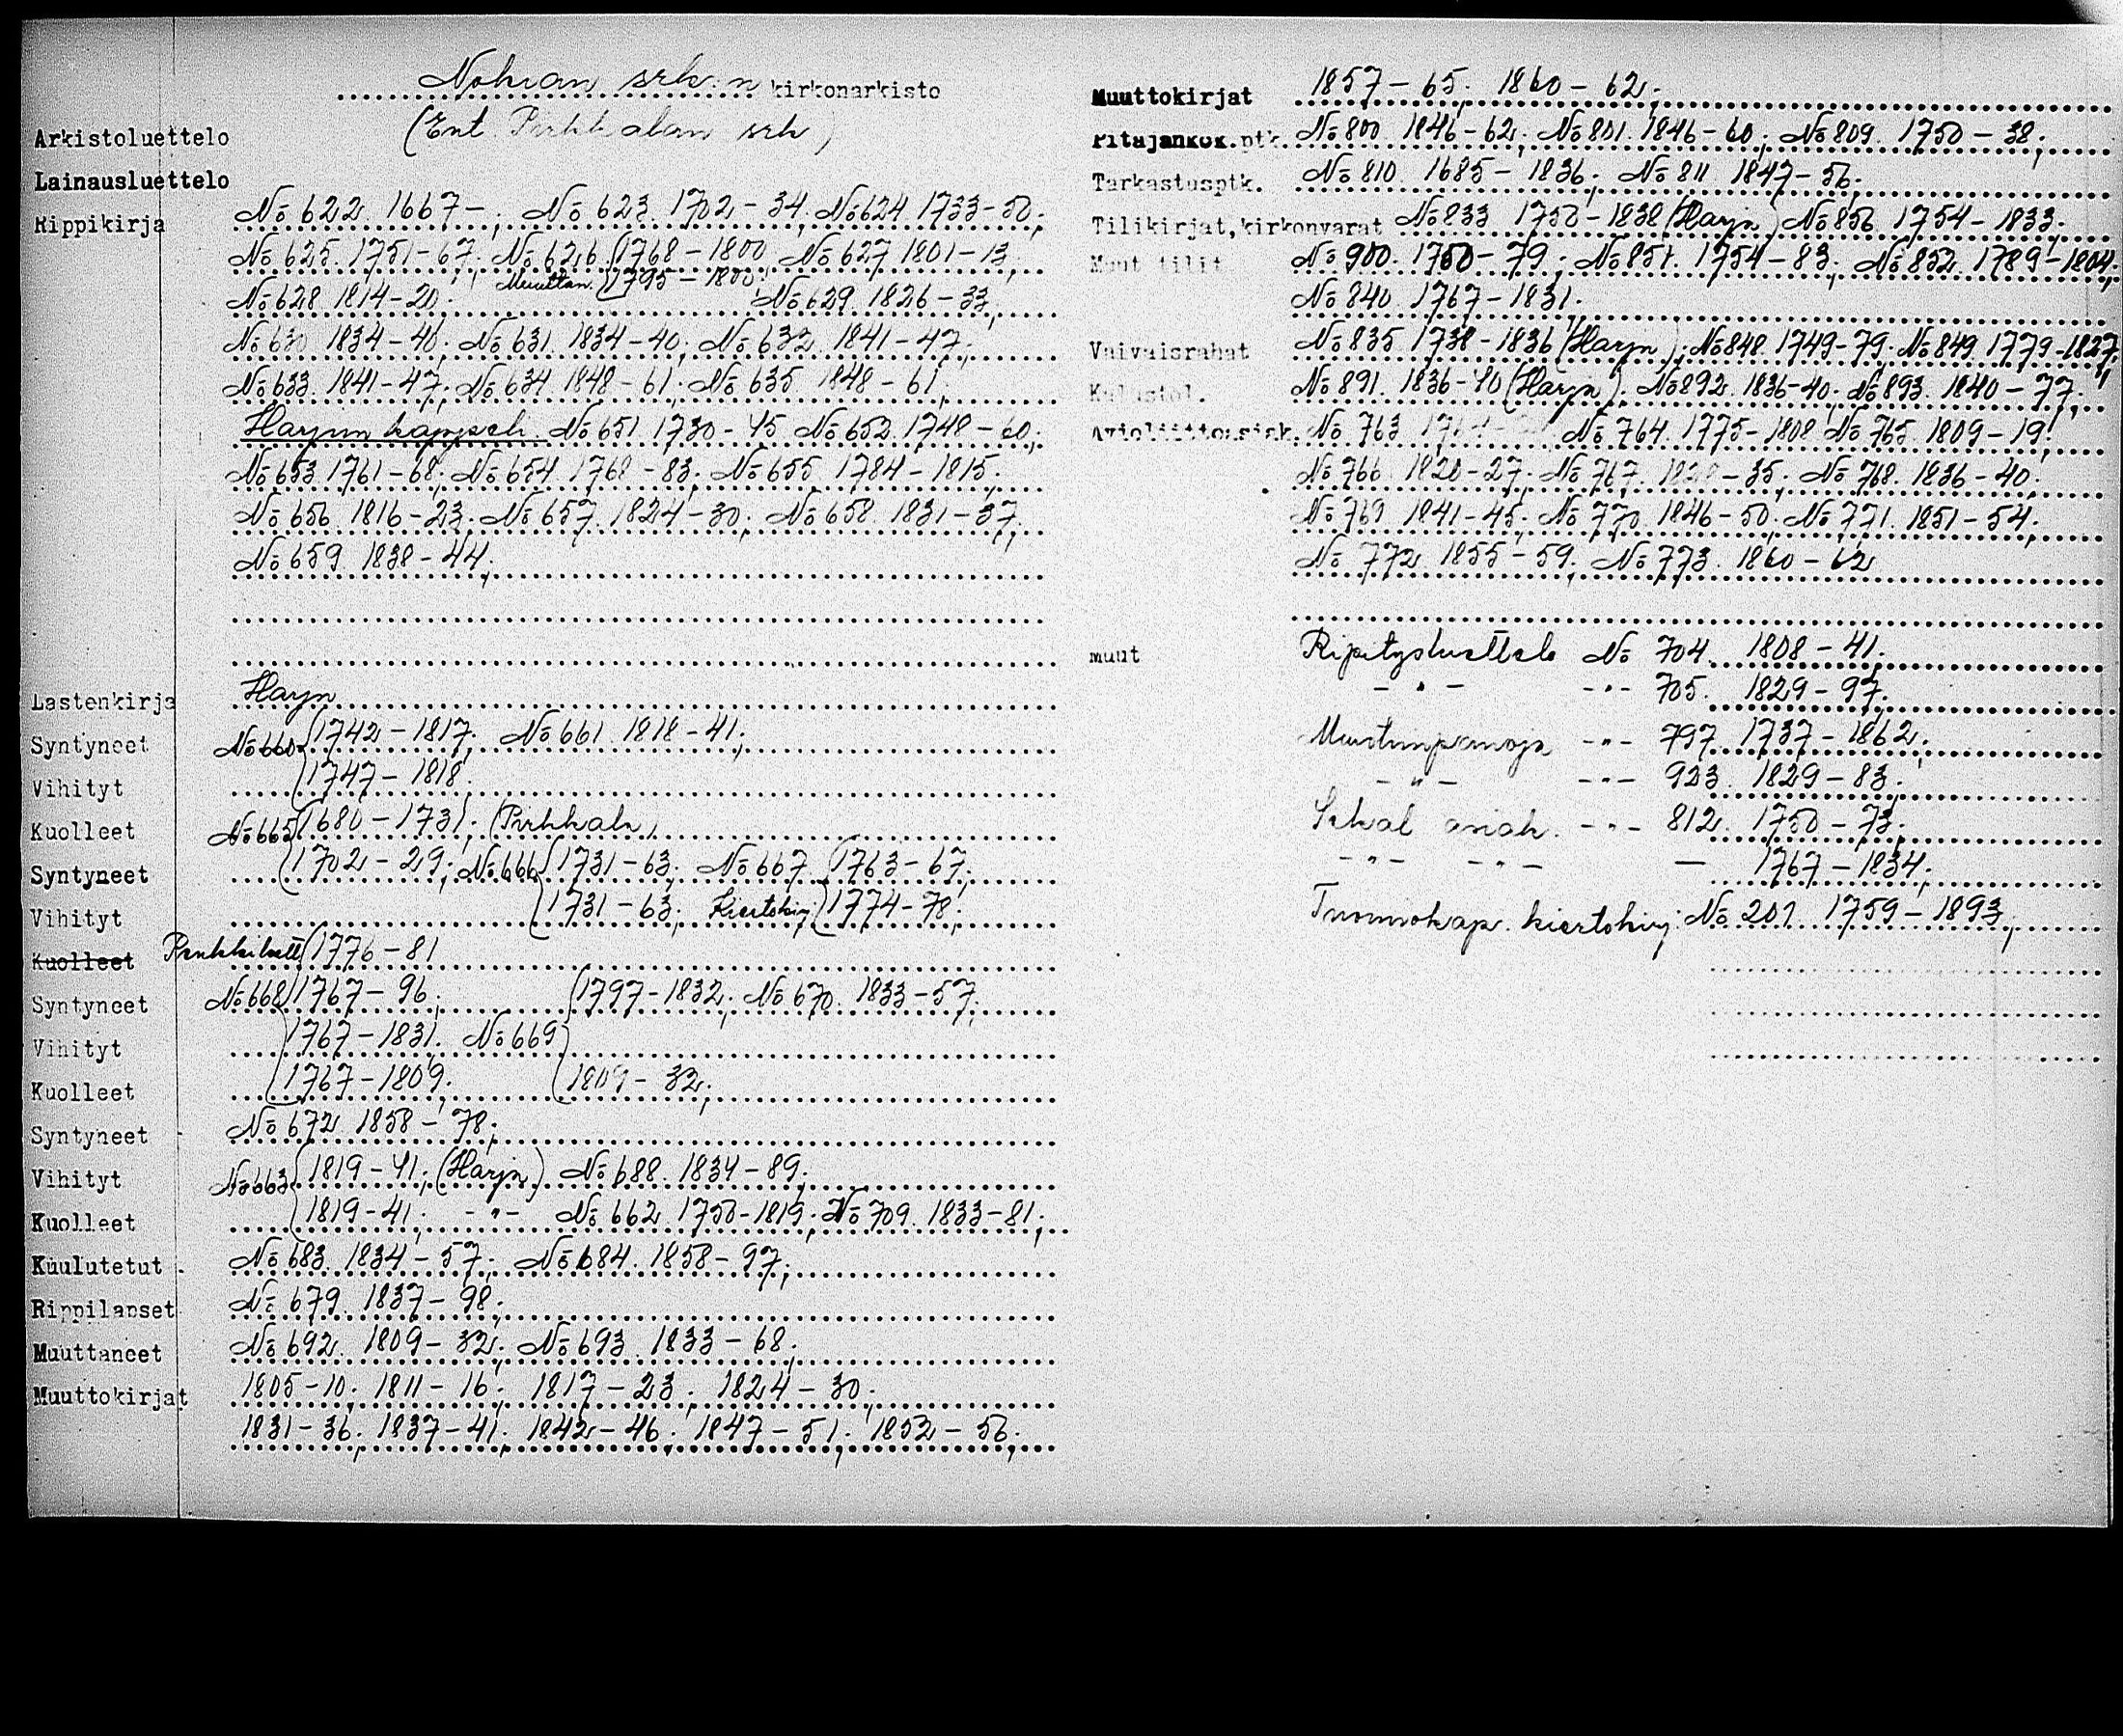 Nokian srk:n kirkonarkisto
(Ent. Pirkkalan srk)
Arkistoluettelo
Lainausluettelo
Rippikirja No 622. 1667-; No 623. 1702-34; No 624 1733-50;
No 625. 1751-67; No 626 1768-1800; No 627 1801-13;
Muuttan. 1795-1800;
No 628 1814-20; No 629. 1826-33;
No 630 1834-40; No 631. 1834-40; No 632. 1841-47;
No 633. 1841-47; No 634 1848-61; No 635. 1848-61;
Harjun kappeli No 651 1730-45 No 652. 1748-60;
No 653 1761-68; No 654 1768-83; No 655 1784-1815;
No 656. 1816-23; No 657. 1824-30; No 658. 1831-37;
No 659 1838-44;
Lastenkirja Harju
Syntyneet No 660 1742-1817; No 661 1818-41;
Vihityt 1747-1818.
Kuolleet No 665 1680-1731; (Pirkkala)
Syntyneet 1702-29; No 666 1731-63; No 667 1763-67;
Vihityt 1731-63; Kiertokirj. 1774-78;
Kuolleet Penkkiluett. 1776-81
Syntyneet No 668 1767-96; 1797-1832; No 670. 1833-57;
Vihityt 1767-1831. No 669
Kuolleet 1767-1809; 1809-32;
Syntyneet No 672 1858-78;
Vihityt No 663 1819-41; (Harju) No 688. 1834-89;
Kuolleet 1819-41; -"- No 662 1750-1819; No 709. 1833-81;
Kuulutetut No 683. 1834-57; No 684. 1858-97;
Rippilapset No 679. 1837-98;
Muuttaneet No 692. 1809-32; No 693. 1833-68;
Muuttokirjat 1805-10; 1811-16; 1817-23; 1824-30;
1831-36; 1837-41; 1842-46; 1847-51; 1852-56;
Muuttokirjat 1857-65; 1860-62;
Pitäjänkok.ptk. No 800. 1846-62; No 801. 1846-60; No 809. 1750-38;
Tarkastusptk. No 810. 1685-1836; No 811 1847-56;
Tilikirjat, kirkonvarat No 833 1750-1838 (Harju) No 856. 1754-1833;
Muut tilit No 900. 1760-79; No 851. 1754-83; No 852. 1789-1804;
No 840. 1767-1831;
Vaivaisrahat No 835 1738-1836 (Harju); No 848. 1749-79; No 849. 1779-1827;
Kalustol. No 891. 1836-40 (Harju); No 892. 1836-40; No 893. 1840-77;
Avioliittoasiak. No 763 No 764. 1775-1808 No 765. 1809-19;
No 766. 1820-27; No 767. 1828-35; No 768. 1836-40;
No 769 1841-45; No 770. 1846-50; No 771. 1851-54;
No 772. 1855-59; No 773. 1860-62
muut Ripityslusttelo No 704. 1808-41.
-"- -"- 705. 1829-97.
Muistiinpanoja -"- 797. 1737-1862;
-"- -"- 923. 1829-83;
Sekal asiak. -"- 812. 1750-73;
-"- -"- — 1767-1834;
Tuomiokap. kiertokirj: No 201. 1759-1893;